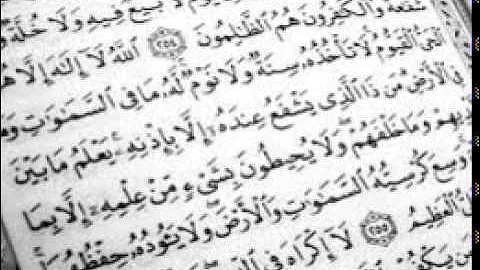 لَّا بَيْعٌ فِيهِ وَلَا خُلَّةٌ وَ
شَفَٰعَةٌ وَٱلْكَٰفِرُونَ هُمُ ٱلظَّٰلِمُونَ ٢٥٤ ٱللَّهُ لَآ إِلَٰهَ إِلَّا هُ
ٱلْحَىُّ ٱلْقَيُّومُ لَا تَأْخُذُهُۥ سِنَةٌ وَلَا نَوْمٌ لَّهُۥ مَا فِى ٱلسَّمَٰوَٰتِ وَمَ
فِى ٱلْأَرْضِ مَن ذَا ٱلَّذِى يَشْفَعُ عِندَهُۥٓ إِلَّا بِإِذْنِهِۦ يَعْلَمُ مَا بَيْنَ
دِيهِمْ وَمَا خَلْفَهُمْ وَلَا يُحِيطُونَ بِشَىْءٍ مِّنْ عِلْمِهِۦٓ إِلَّا بِمَا
وَسِعَ كُرْسِيُّهُ ٱلسَّمَٰوَٰتِ وَٱلْأَرْضَ وَلَا يَـُٔودُهُۥ حِفْظُهُمَا
ٱلْعَظِيمُ ٢٥٥ لَآ إِكْرَاهَ فِى